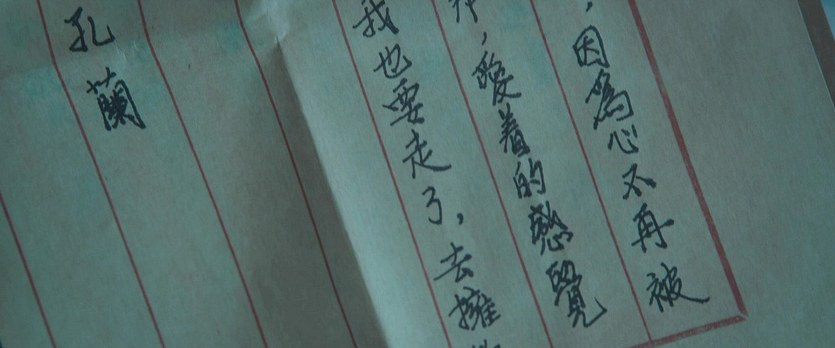 ，因為心不再被
，愛着的感覺
我也要走了，去擁
孔蘭